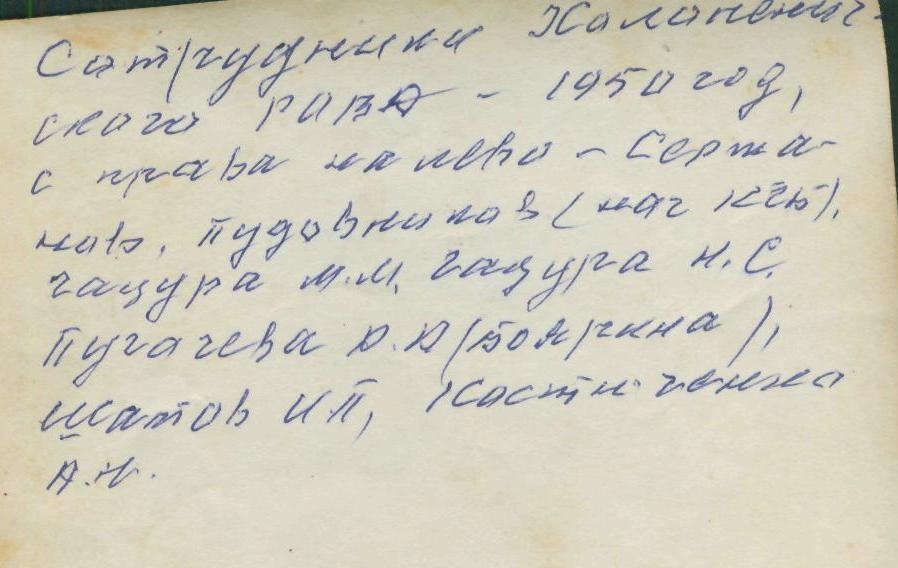 Сотрудники Калиненич-
ского РОВД - 1950 год,
с права на лево - Сержа-
нов, Пудовников (нач КГБ),
Гацура М.М, Гацура Н.С.
Пугачева А.А (Бояркина),
Шатов ИП, Костюченко
А.Н.